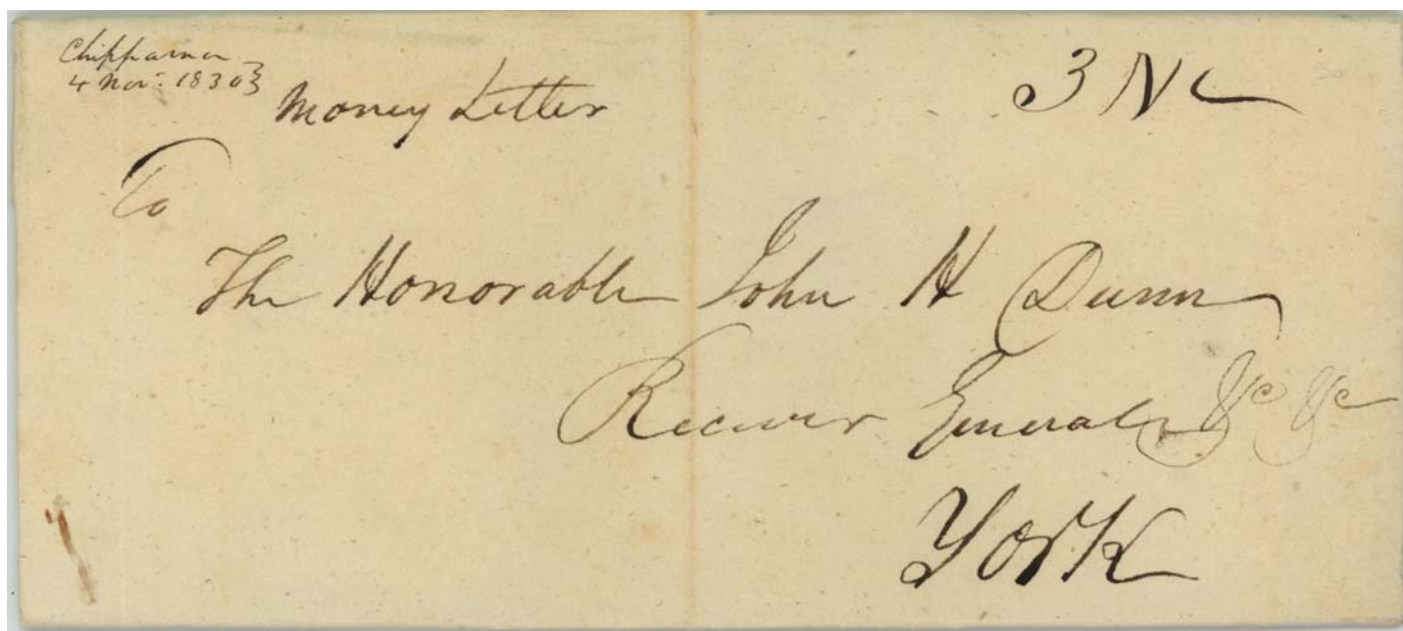 Chippawa
4 Nov: 1830
Money Letter
3 N
To
The Honorable John H Dunn
Receiver General &c &c
York